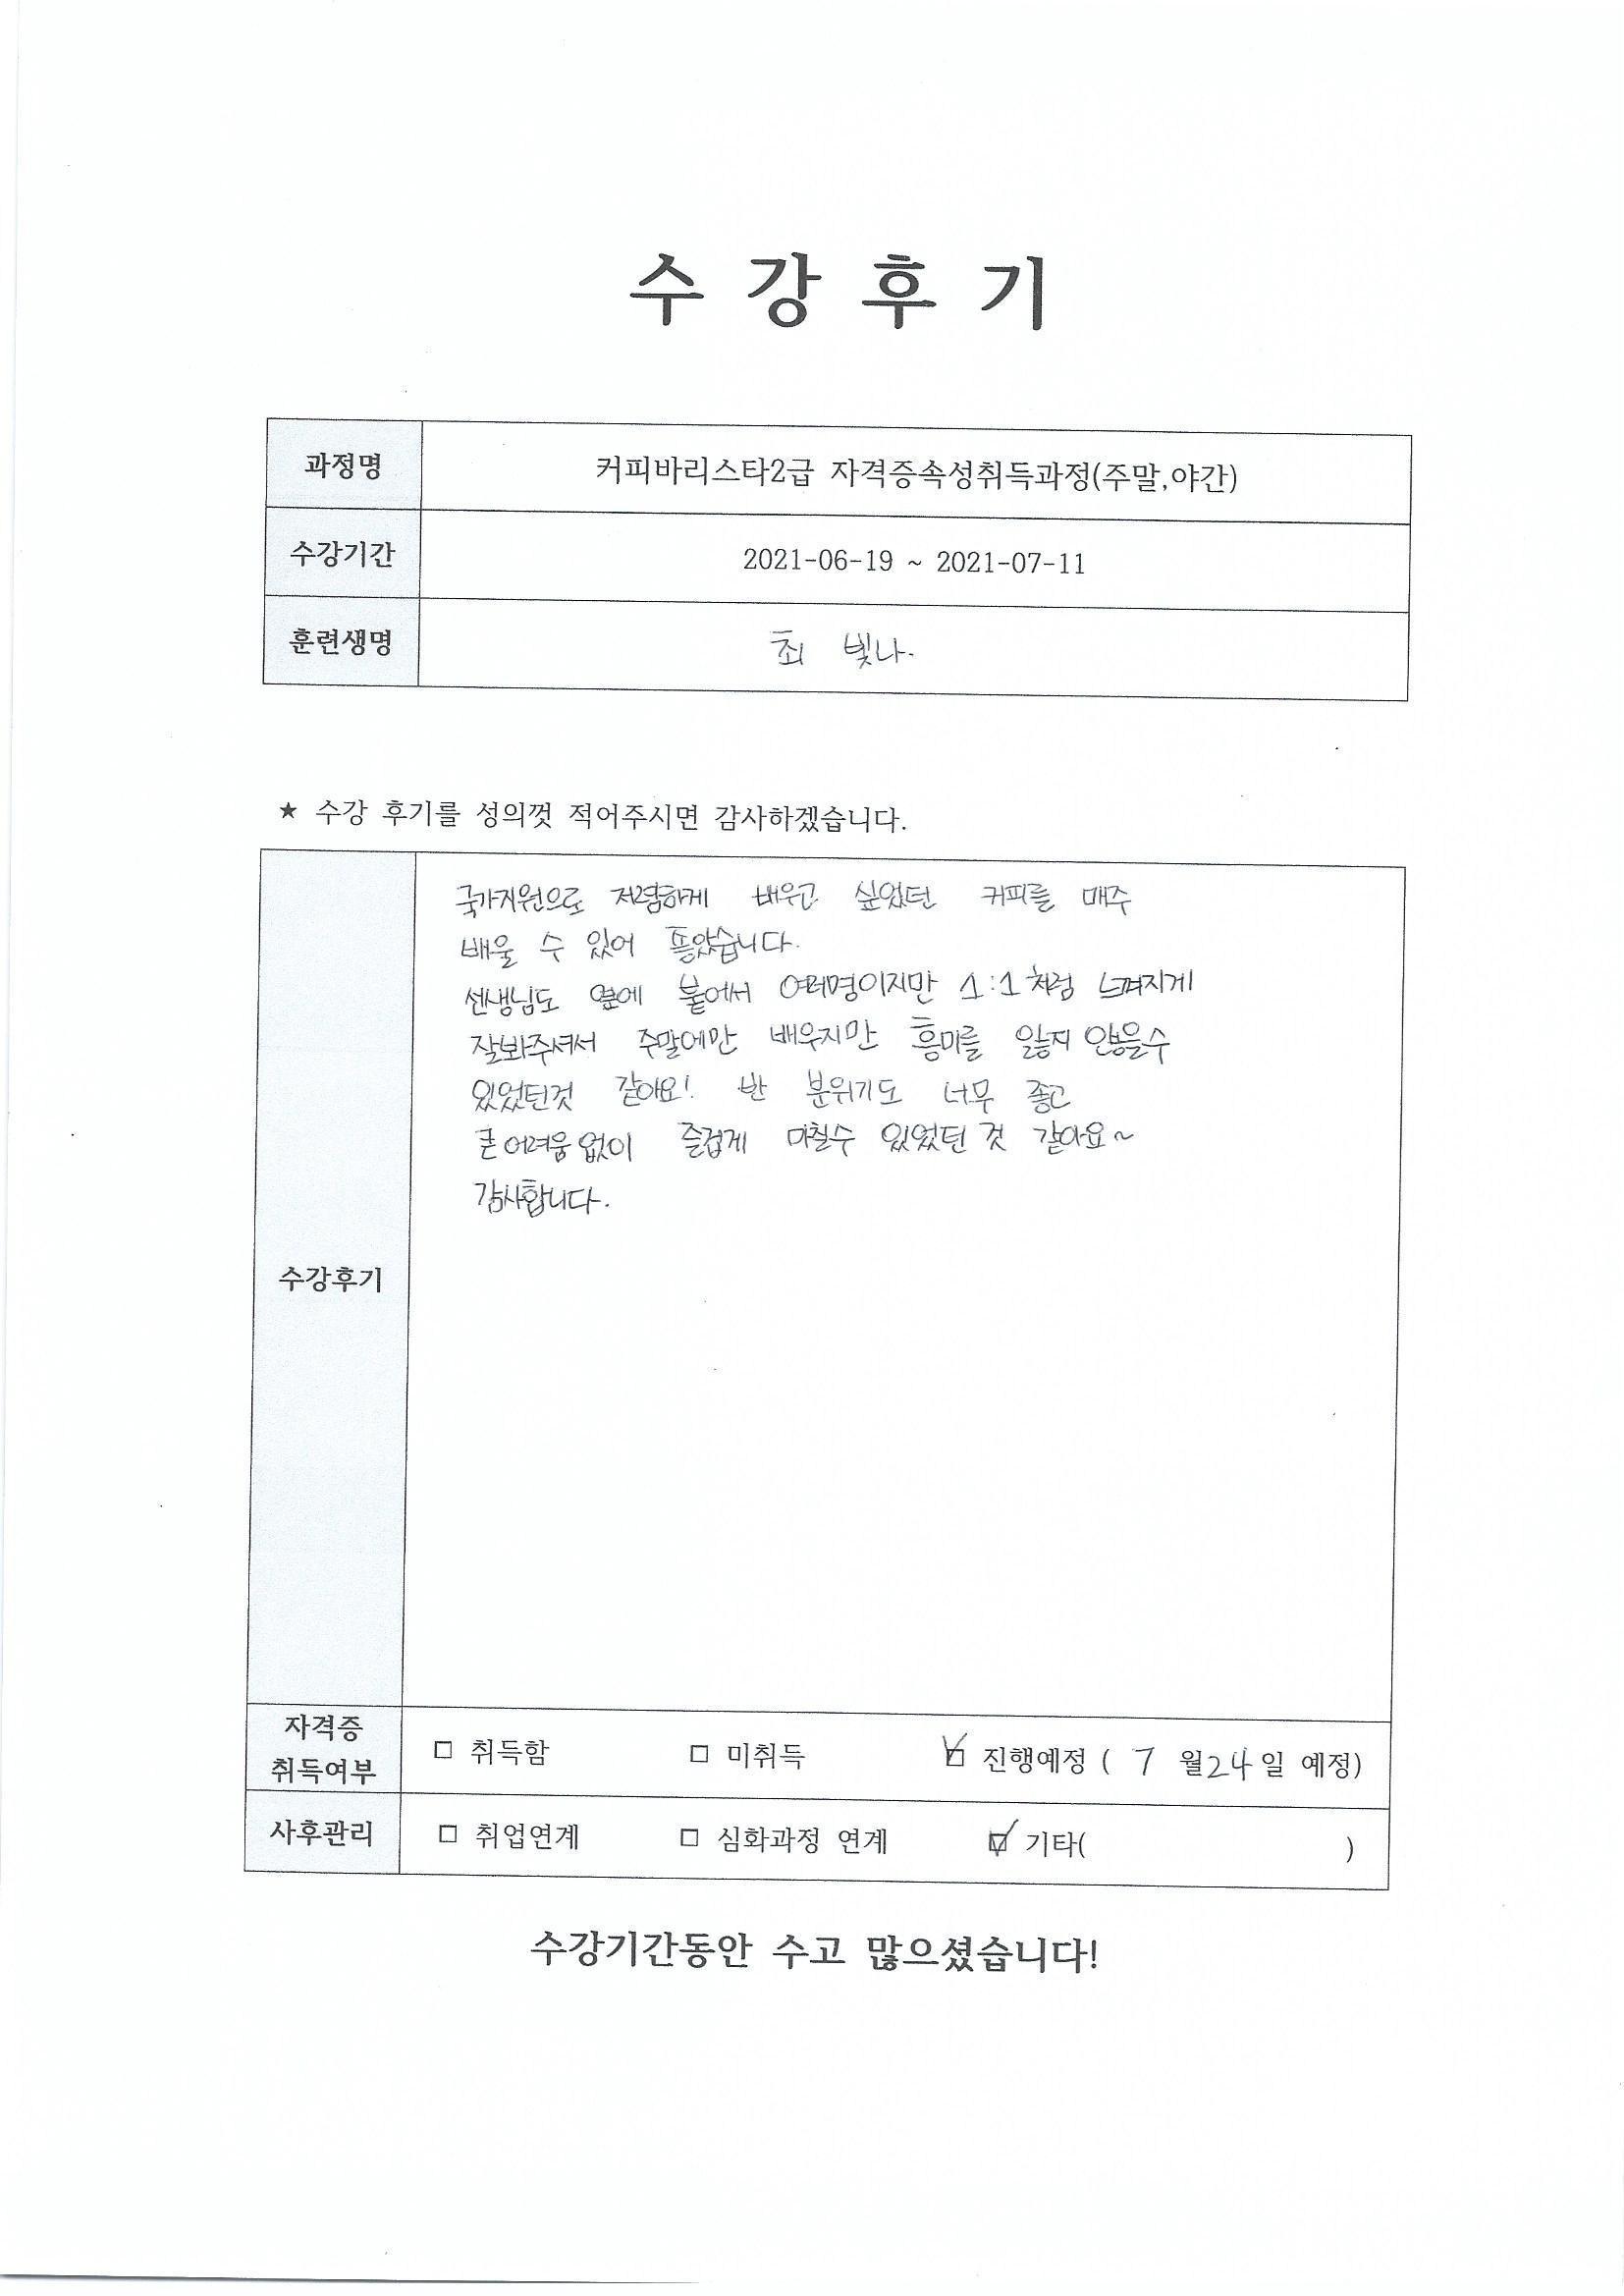 수 강 후 기
과정명 커피바리스타2급 자격증속성취득과정(주말,야간)
수강기간 2021-06-19 ~ 2021-07-11
훈련생명 최 빛나.
★ 수강 후기를 성의껏 적어주시면 감사하겠습니다.
국가지원으로 저렴하게 배우고 싶었던 커피를 매주
배울 수 있어 좋았습니다.
선생님도 옆에 붙어서 여러명이지만 1:1처럼 느껴지게
잘봐주셔서 주말에만 배우지만 흥미를 잃지 않을수
있었던것 같아요! 반 분위기도 너무 좋고
큰 어려움 없이 즐겁게 마칠수 있었던 것 같아요~
감사합니다.
수강후기
자격증
취득여부 □ 취득함 □ 미취득 ☑ 진행예정 ( 7 월 24 일 예정)
사후관리 □ 취업연계 □ 심화과정 연계 ☑ 기타( )
수강기간동안 수고 많으셨습니다!